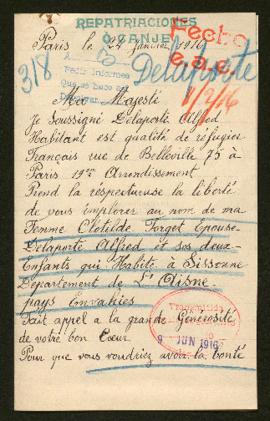 REPATRIACIONES
O CANJE
Paris le 24 Janvier 1916
Hecho
318
Delaporte
Pedir informes
Que se hace en
1/2/16
Majesté
Je Soussigné Delaporte Alfred
Habitant est qualité de réfugier
Français rue de Belleville 75 à
Paris 19me Arrondissement
Prend la respectueuse la liberté
de vous implorer au nom de ma
Femme Clotilde Forget Epouse
Delaporte Alfred et ses deux
Enfants qui Habite à Sissonne
Departement de L'Aisne
pays envahies
Fait appel a la grande Génerosité
de votre bon Cœur
9 JUN 1916
Pour que vous voudriez avoir la bonté